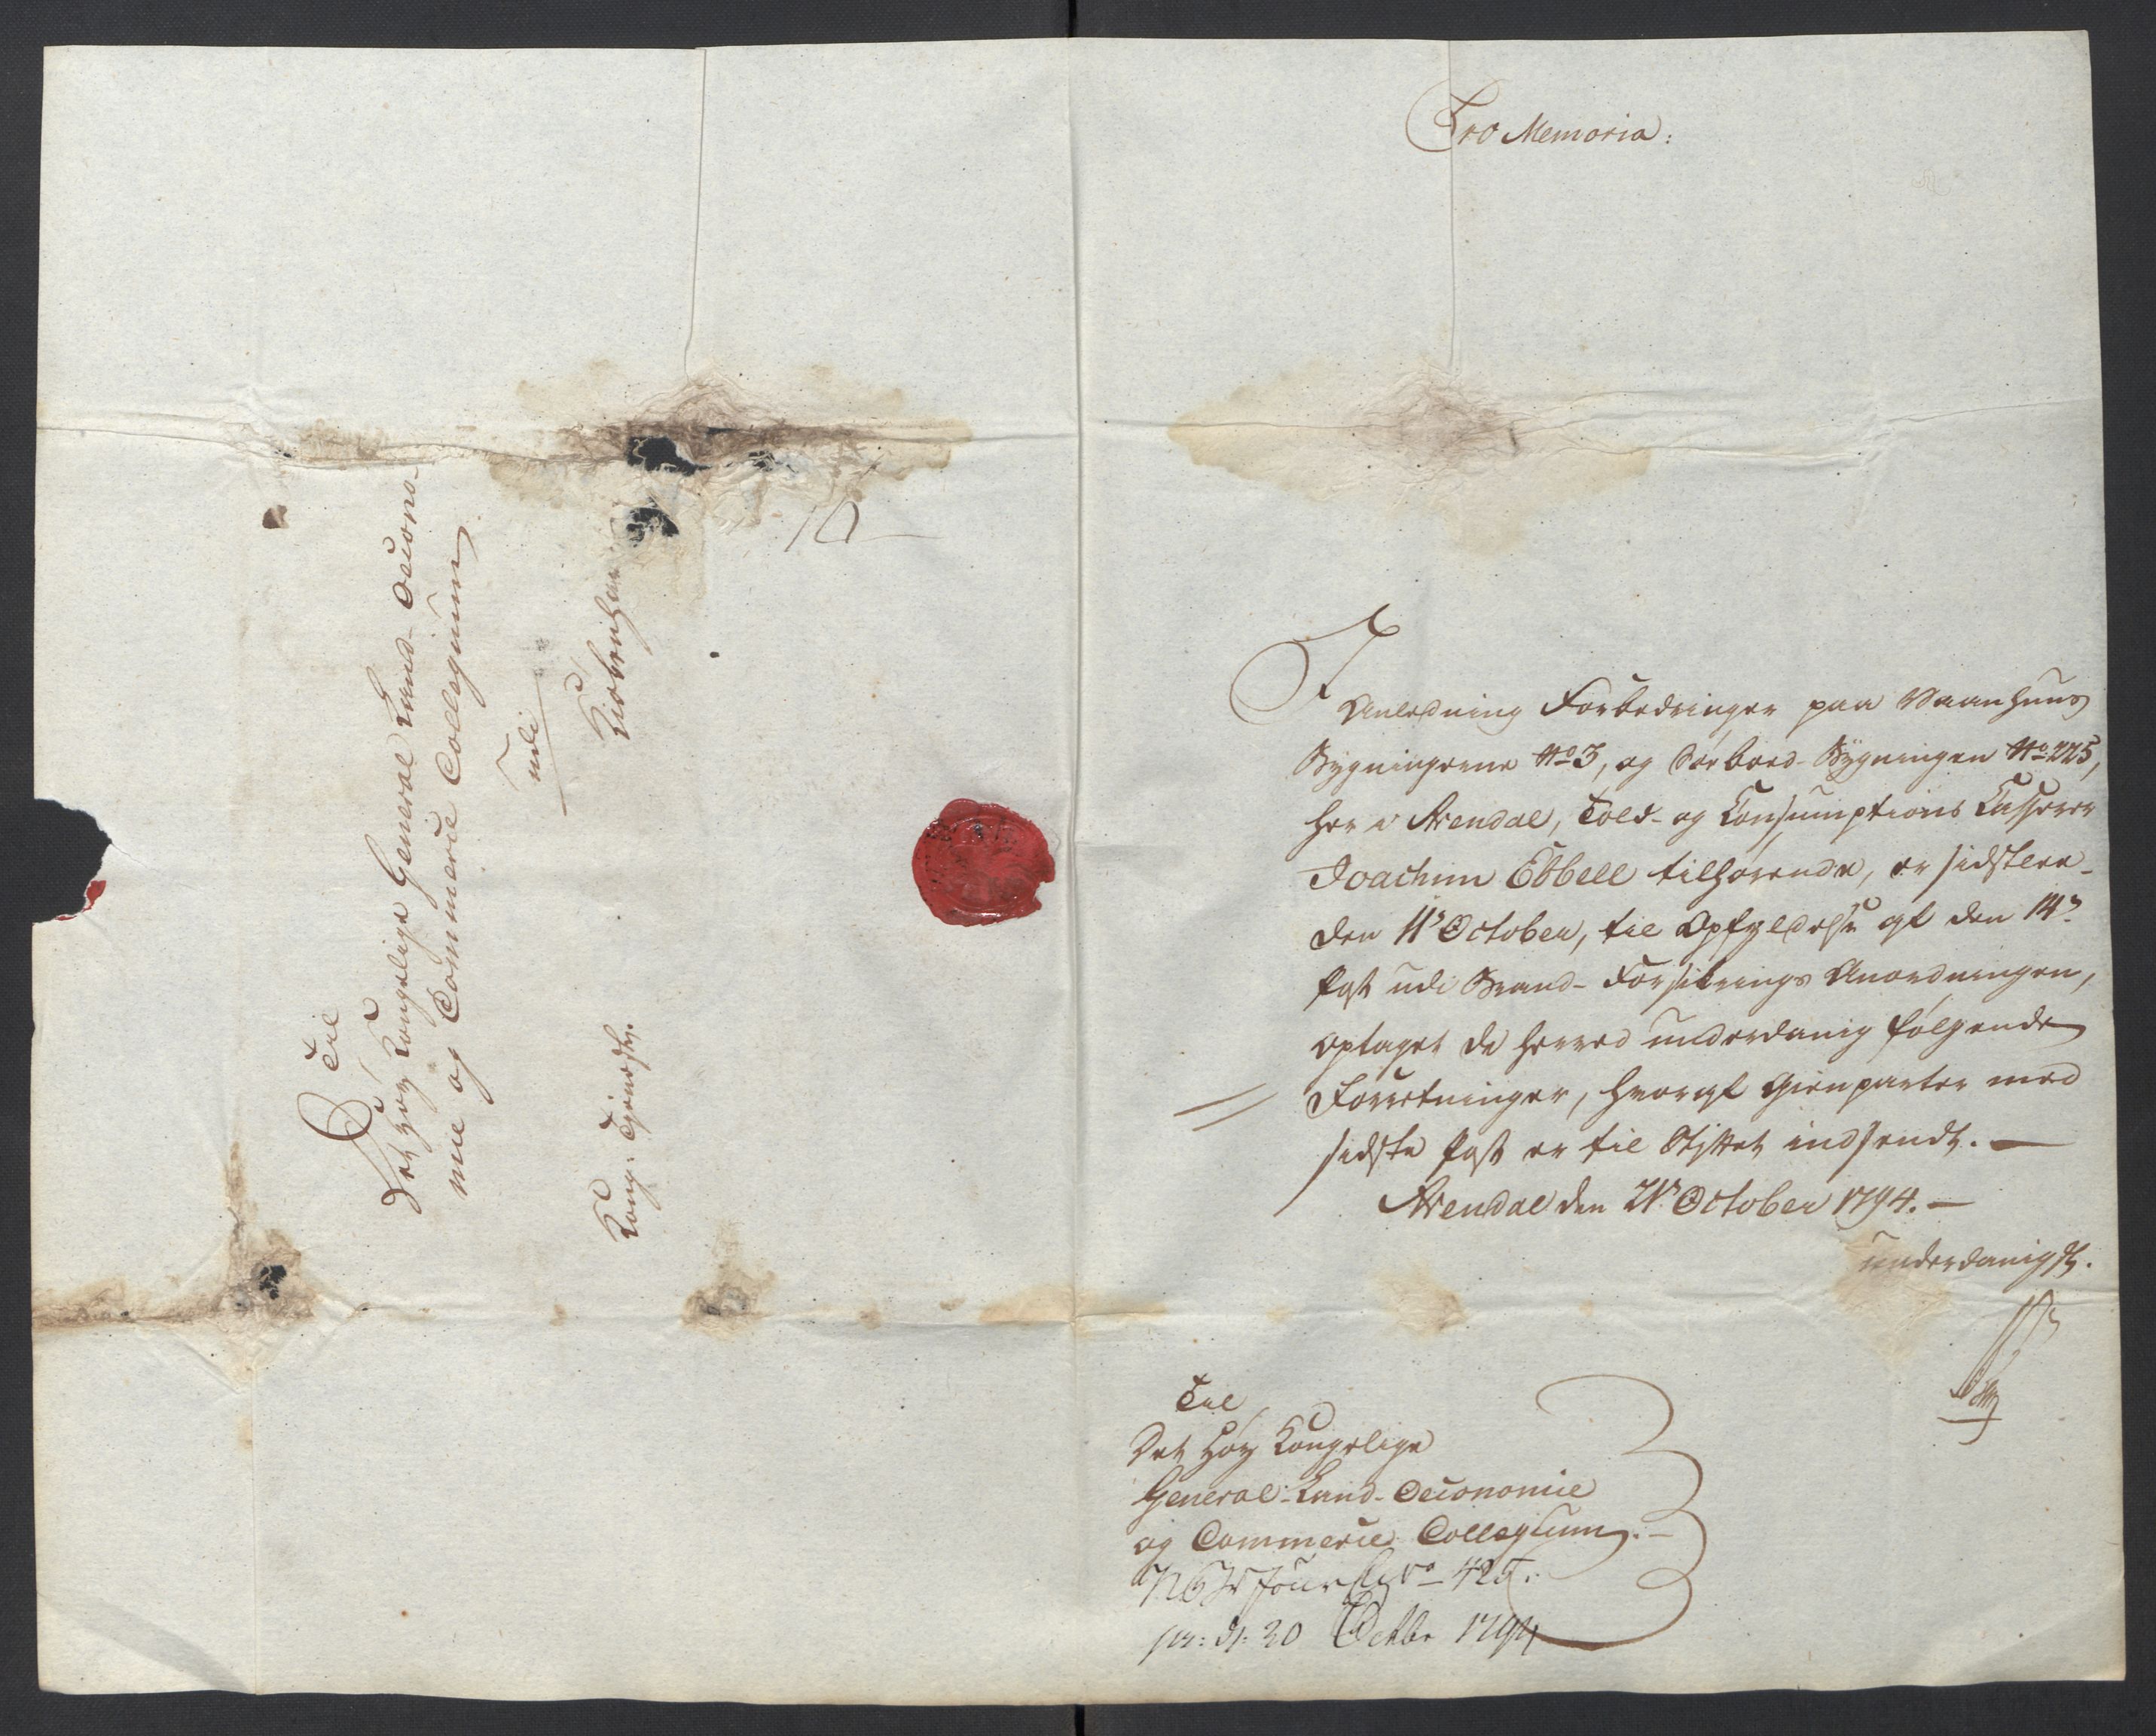 Til
Det Høy Kongelige General Land-Oecono-
mie og Commerce Collegium
udi
Kiøbenhavn
Kong: Tjeneste.
Pro Memoria:
I Anledning Forbedringer paa Vaanhuus
Bygningerne No 3, og Bygningen No 225,
her i Arendal, Told- og Consumptions Casserer
Joachim Ebbell tilhørende, er sidstlee-
den 11t October, til Opfyldelse af den 14de
Post udi Brand-Forsikrings Anordningen,
optaget de herved underdanig følgende
Forretninger, hvoraf Gienparter med
sidste Post er til Stiftet indsendt. —
Arendal den 21t October 1794. —
underdanigst.
Til
Det Høy Kongelige
General-Land-Oeconomie
og Commerce Collegium. —
Jour No 425.
pr: d: 30 Octbr 1794